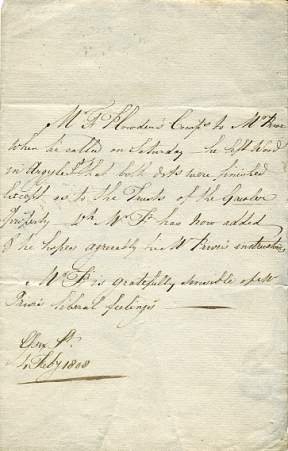 Mr F Plowden's Comps to Mr
When he called on Saturday he left Word
in Argyle St that both drafts were finished
Except as to the Trusts of the
Property wch Mr P has now added
& he hopes agreeably to Mr instructions
Mr P is gratefully sensible of Mr
liberal feelings
Feby 1808